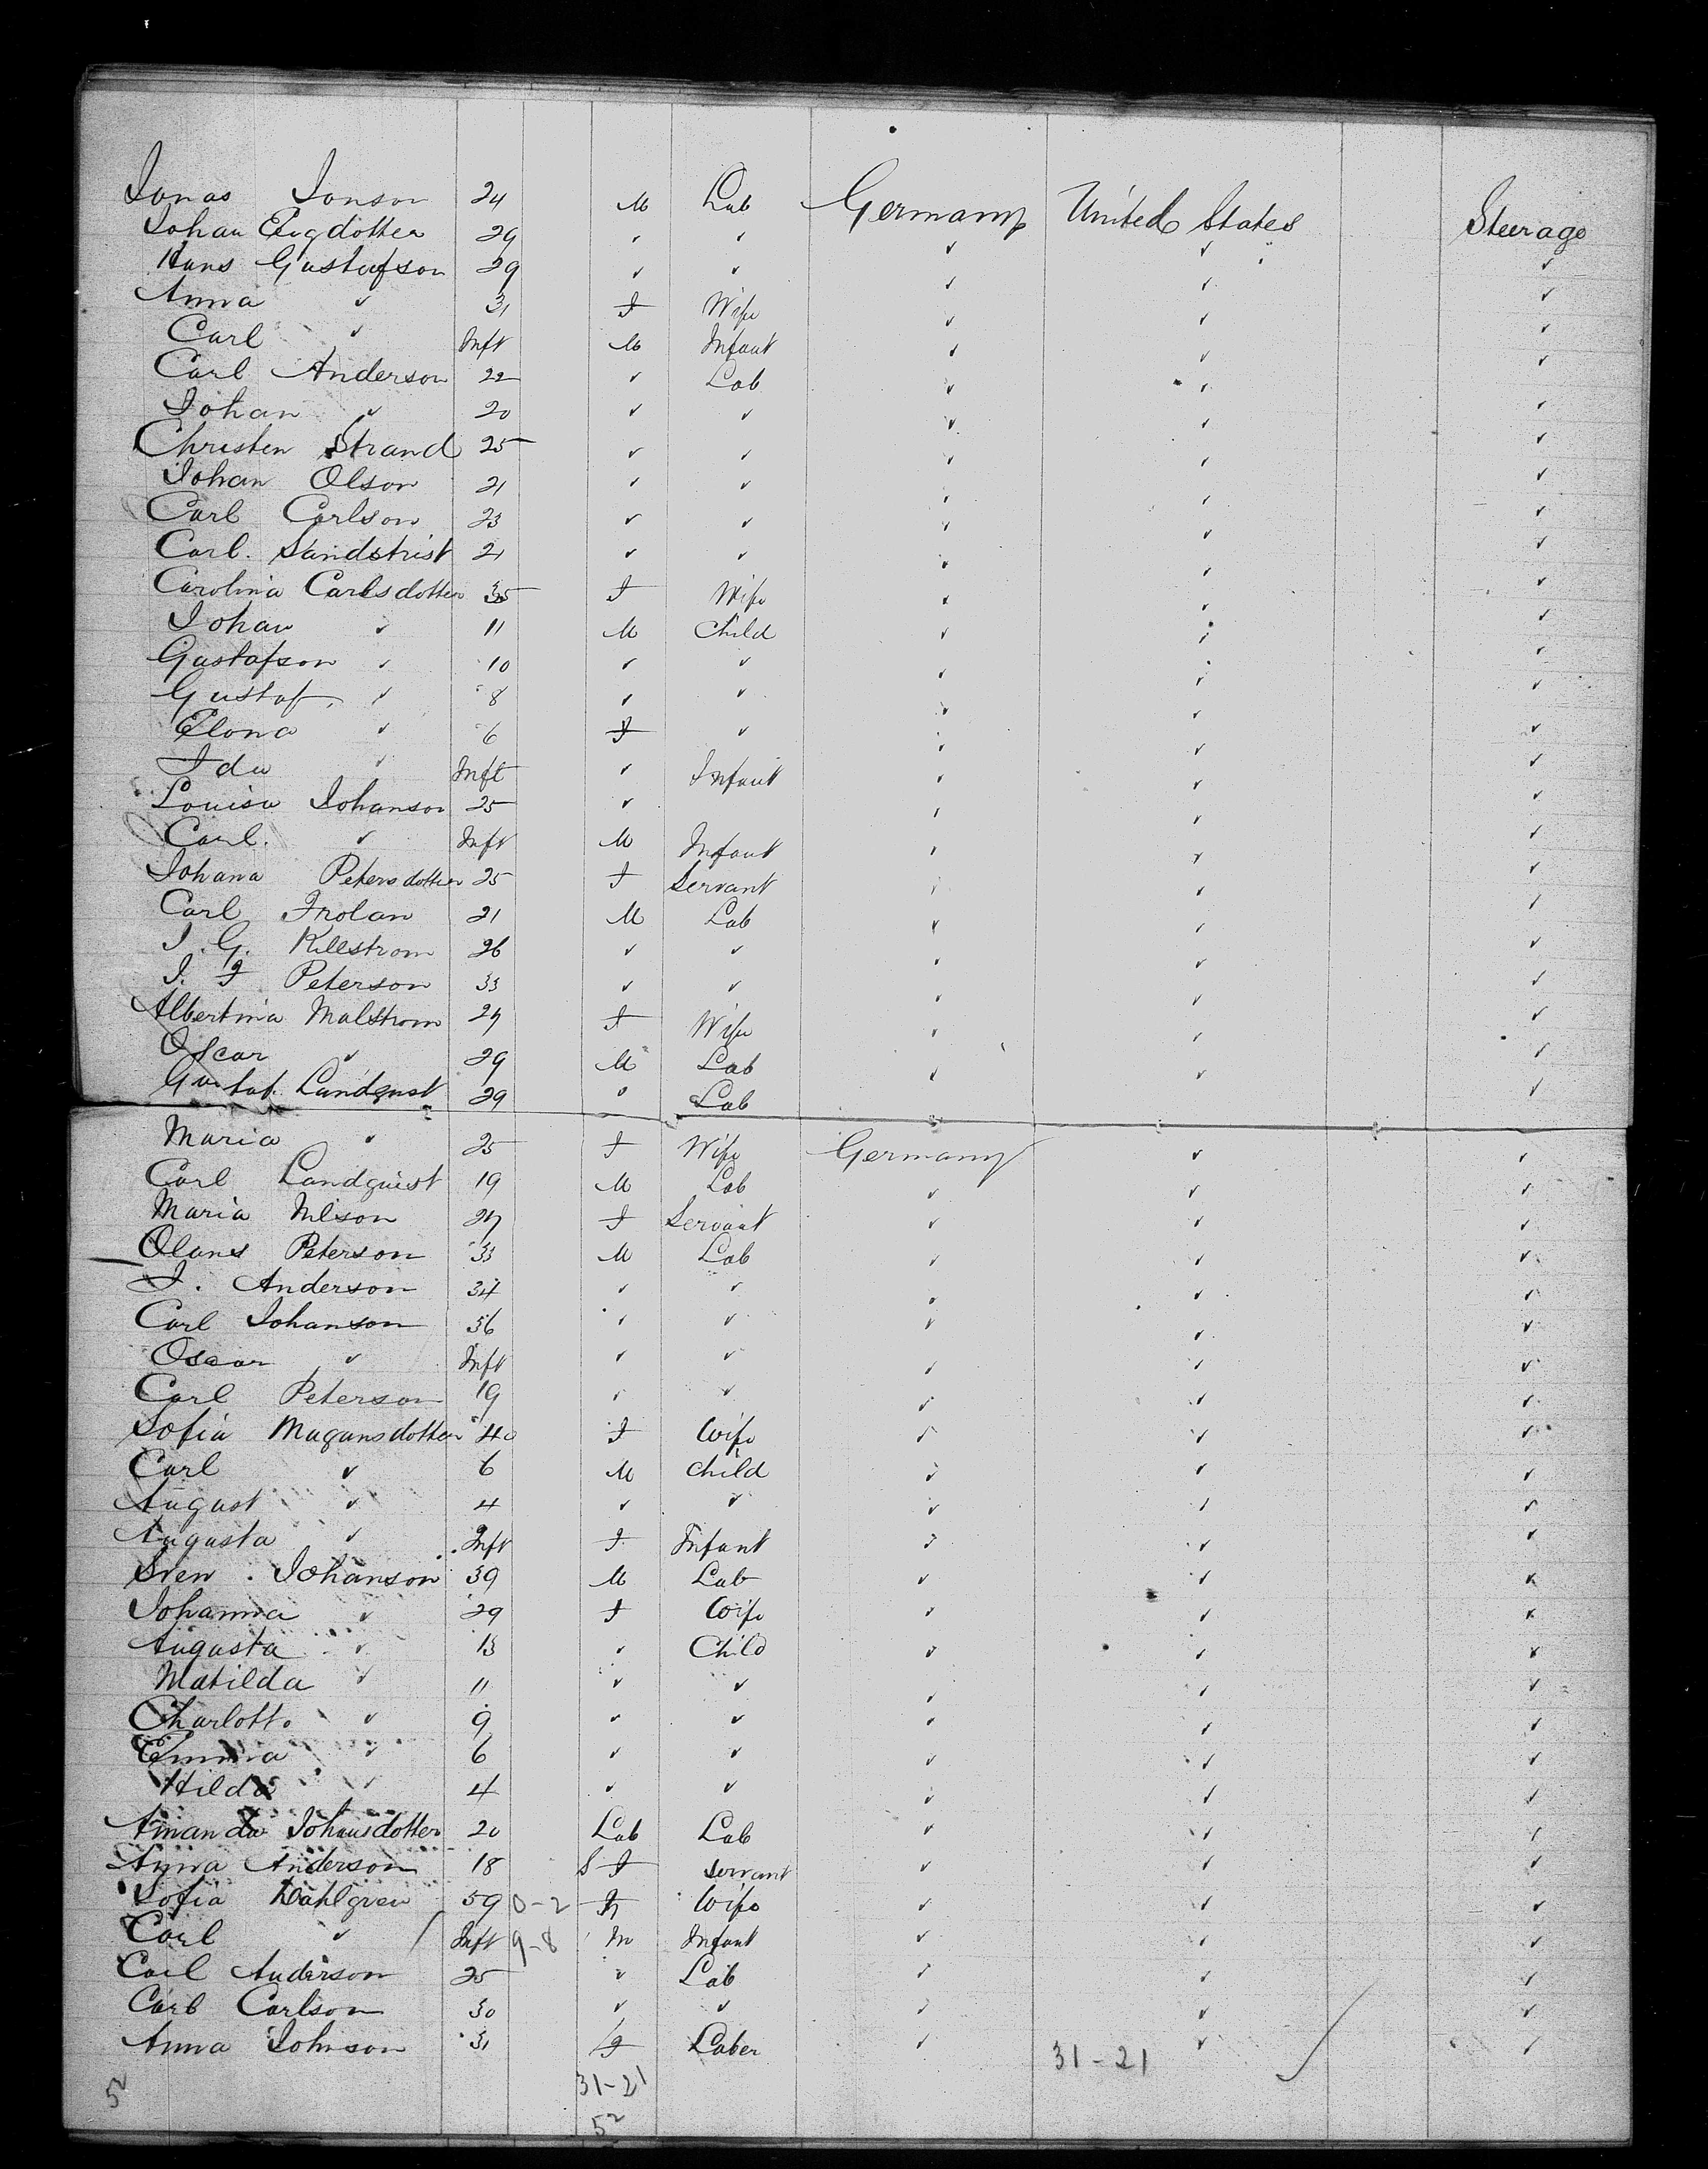 Jonas Jonson 24 M Lab Germany United States Steerage
Johan Eugdotter 29 " " " " "
Hans Gustafson 29 " " " " "
Anna " 31 F Wife " " "
Carl " Inft M Infant " " "
Carl Anderson 22 " Lab " " "
Johan " 20 " " " " "
Christen Strand 25 " " " " "
Johan Olson 21 " " " " "
Carl Carlson 23 " " " " "
Carl. Sandstrist 21 " " " " "
Carolina Carlsdotter 35 F Wife " " "
Johan " 11 M Child " " "
Gustafson " 10 " " " " "
Gustaf " 8 " " " " "
Elona " 6 F " " " "
Ida " Inft " Infant " " "
Louisa Johanson 25 " " " "
Carl. " Inft M Infant " " "
Johana Petersdotter 25 F Servant " " "
Carl Frolan 21 M Lab " " "
J. G. Killstrom 26 " " " " "
J. F Peterson 33 " " " " "
Albertina Malstrom 27 F Wife " " "
Oscar " 29 M Lab " " "
Gustaf. Landqust 29 " Lab
Maria " 25 F Wife Germany " "
Carl Landquist 19 M Lab " " "
Maria Nilson 27 F Servant " " "
Olans Peterson 33 M Lab " " "
J. Anderson 34 " " " " "
Carl Johanson 36 " " " " "
Oscar " Inft " " " " "
Carl Peterson 19 " " " " "
Sofia Magansdotter 40 F Wife " " "
Carl " 6 M Child " " "
August " 4 " " " " "
Augusta " Inft F Infant " " "
Sven Johanson 39 M Lab " " "
Johanna " 29 F Wife " " "
Augusta " 13 " Child " " "
Matilda " 11 " " " " "
Charlotte " 9 " " " " "
Emma " 6 " " " " "
Hilda " 4 " " " " "
Amanda Johansdotter 20 Lab Lab " " "
Anna Anderson 18 F Servant " " "
Sofia Dahlgren 59 0-2 F Wife " " "
Carl " Inft 9-8 M Infant " " "
Carl Anderson 25 " Lab " " "
Carl Carlson 30 " " " " "
Anna Johnson 31 F Laber " " "
31-21
52 31-21
52